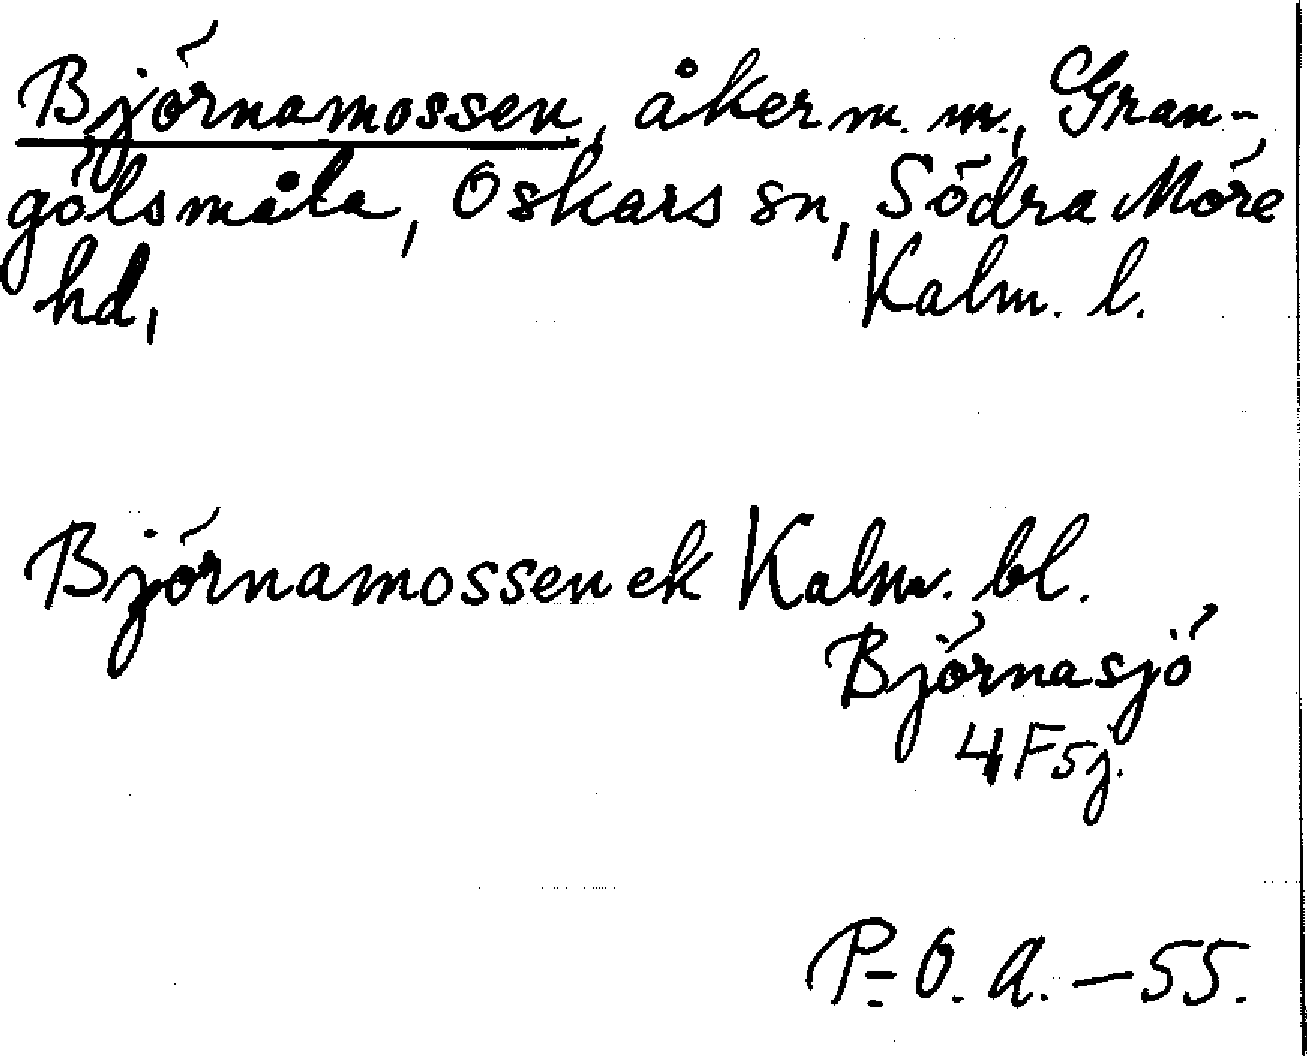 Björnamossen, åker m. m., Gran-
gölsmåla, Oskars sn, Södra Möre
hd, Kalm. l.
Björnamossen ek Kalm. bl.
Björnasjö
4 F sj.
P-O. A. - 55.